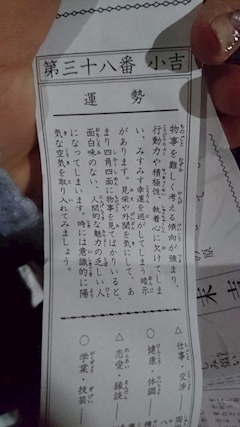 第三十八番 小吉
運勢
物事を難しく考える傾向が強まり、
行動力や積極性、執着心に欠けてしま
い、みすみす幸運を逃がしてしまう暗示
があります。見栄や外聞を気にして、あ
まり四角四面に物事を見てばかりいると、
面白味のない、人間的な魅力の乏しい人
になってしまいます。時には意識的に陽
気な空気を取り入れてみましょう。
△仕事・交渉
○健康・体調
△恋愛・縁談
○学業・技芸
末吉